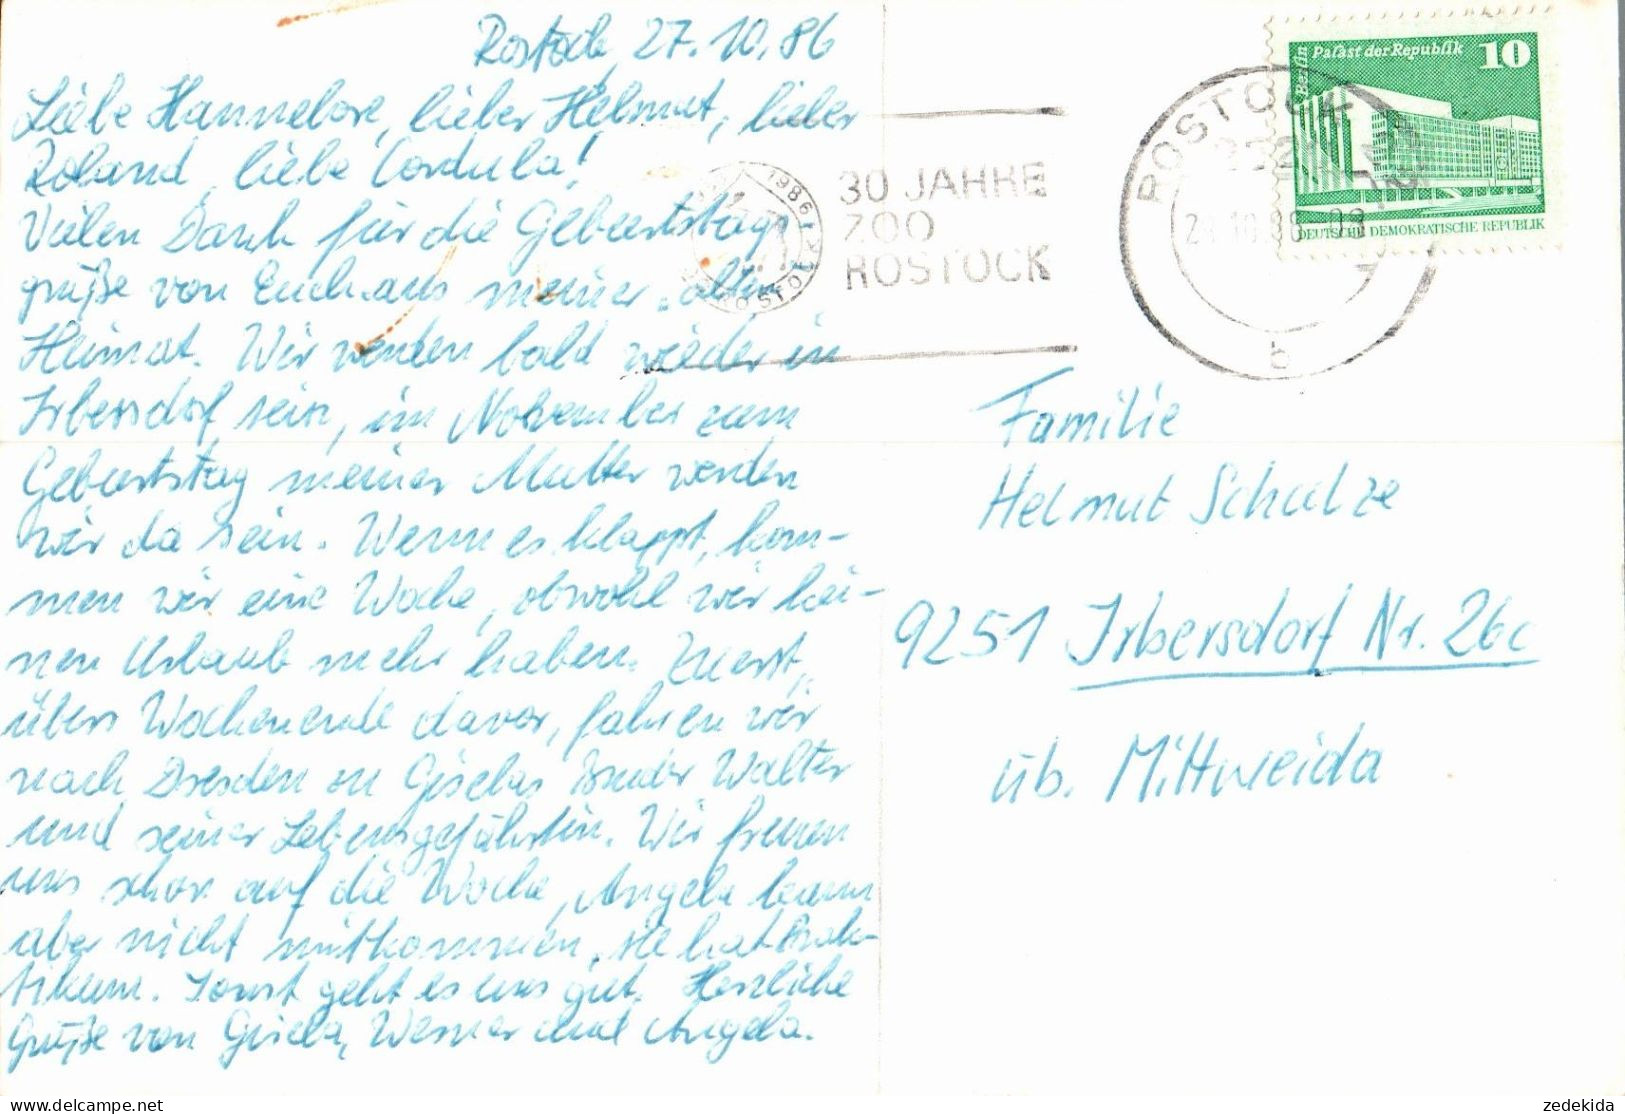 Rostock, 27.10.86
Liebe Hannelore, lieber Helmut, lieber
Roland, liebe Cordula!
Vielen Dank für die Geburtstags-
grüße von Euch aus meiner alten
Heimat. Wir werden bald wieder in
Irbersdorf sein, im November zum
Geburtstag meiner Mutter werden
wir da sein. Wenn es klappt, kom-
men wir eine Woche, obwohl wir kei-
nen Urlaub mehr haben. Zuerst,
übers Wochenende davor, fahren wir
nach Dresden zu Giselas Bruder Walter
und seiner Lebensgefährtin. Wir freuen
uns schon auf die Woche, Angela kann
aber nicht mitkommen, sie hat Prak-
tikum. Sonst geht es uns gut. Herzliche
Grüße von Gisela, Werner und Angela.
1986
ROSTOCK
30 JAHRE
ZOO
ROSTOCK
ROSTOCK
b
Berlin
Palast der Republik
10
DEUTSCHE DEMOKRATISCHE REPUBLIK
Familie
Helmut Schulze
9251 Irbersdorf Nr. 26c
üb. Mittweida
zedekida